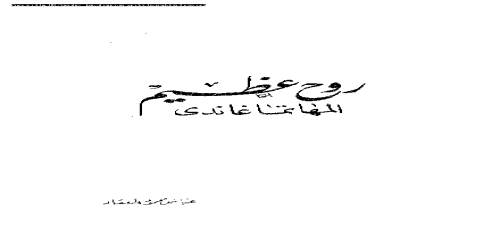 روح عظيم
المهاتما غاندى
عباس محمود العقاد